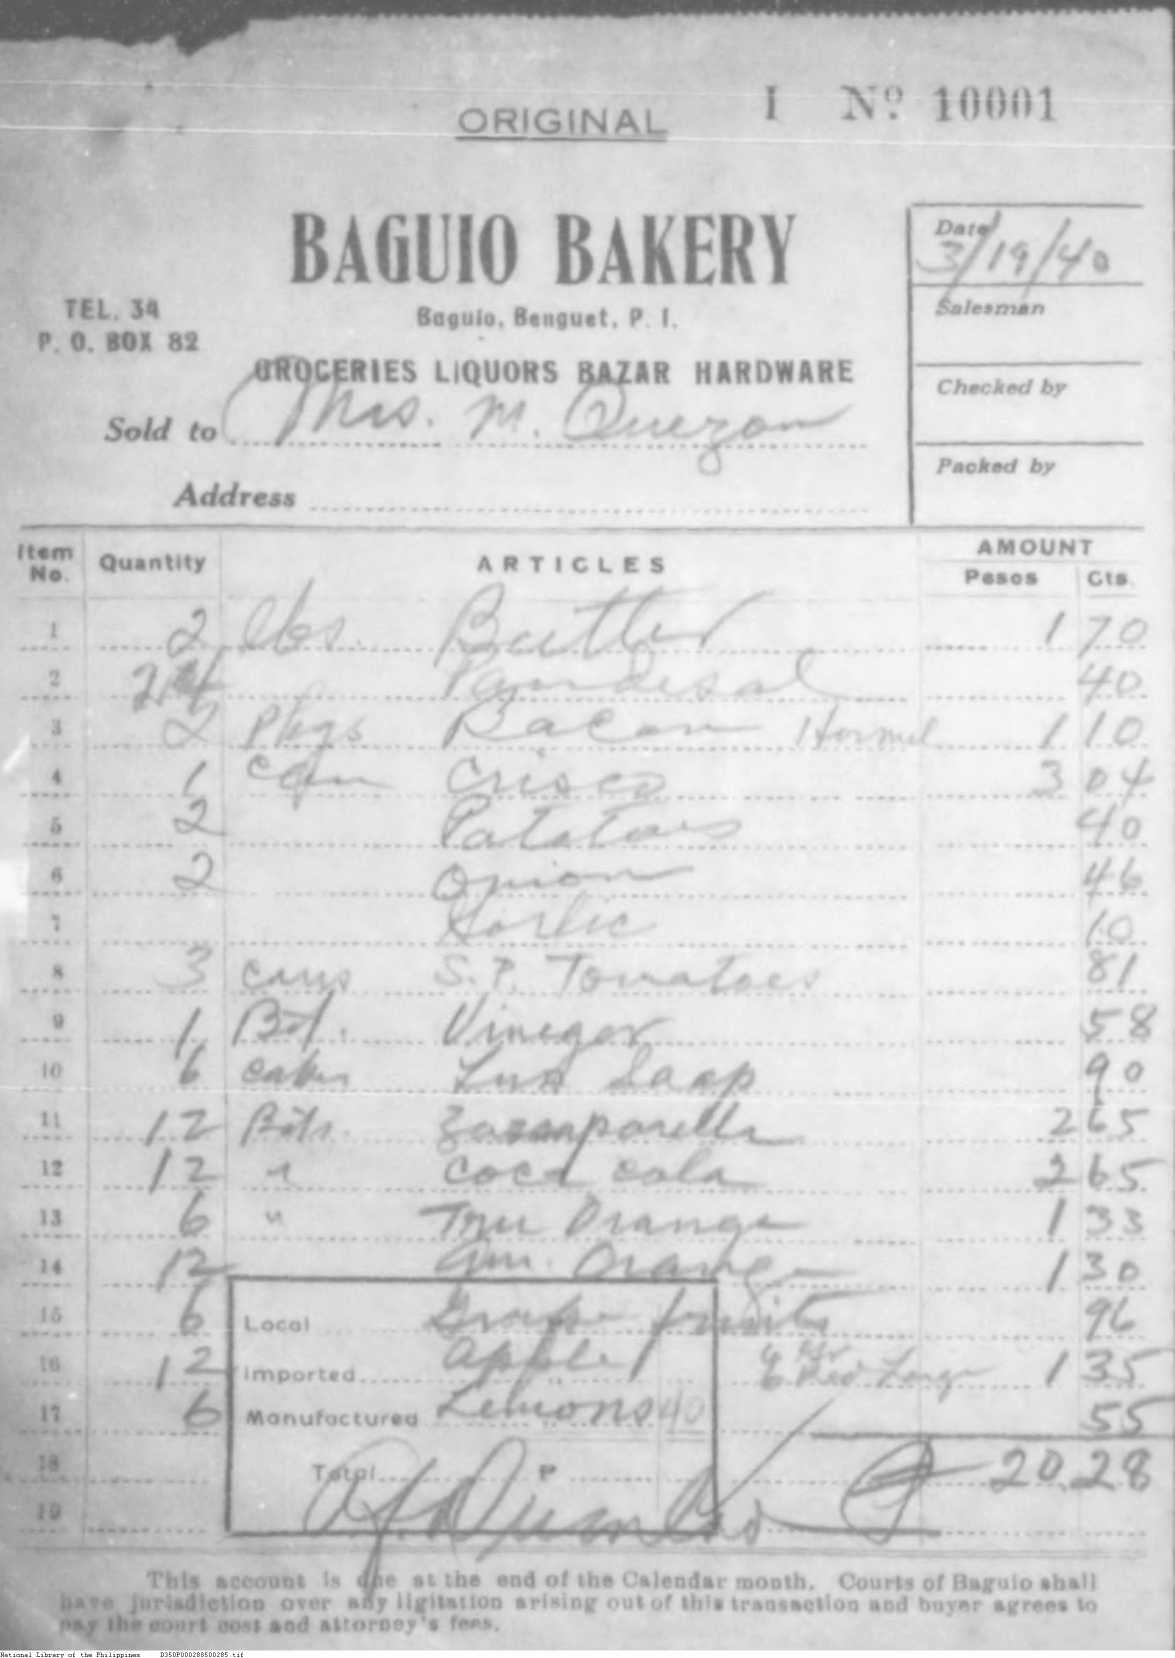 ORIGINAL I Nº 10001
BAGUIO BAKERY
Date
3/19/40
TEL. 34
Baguio, Benguet, P. I.
Salesman
P. O. BOX 82
GROCERIES LIQUORS BAZAR HARDWARE
Checked by
Sold to Mrs. M. Quezon
Packed by
Address
Item No. Quantity ARTICLES AMOUNT
Pesos Cts.
1 2 lbs. Butter 1 70
2 Pandesal 40
3 2 Pkgs Bacon Hormel 1 10
4 1 can Crisco 3 04
5 2 Potatoes 40
6 2 Onion 46
7 Garlic 10
8 3 cans S.P. Tomatoes 81
9 1 Bot. Vinegar 58
10 6 cakes Lux Soap 90
11 12 Bots. Zazaparella 2 65
12 12 " Coca Cola 2 65
13 6 " Tru Orange 1 33
14 12 Am. Orange 1 30
15 6 Local Grape fruits 96
16 12 Imported Apple 6 Red Large 1 35
17 6 Manufactured Lemons 40 55
18 Total P 20.28
19
This account is due at the end of the Calendar month. Courts of Baguio shall
have jurisdiction over any ligitation arising out of this transaction and buyer agrees to
pay the court cost and attorney's fees.
National Library of the Philippines D350P000288500285.tif